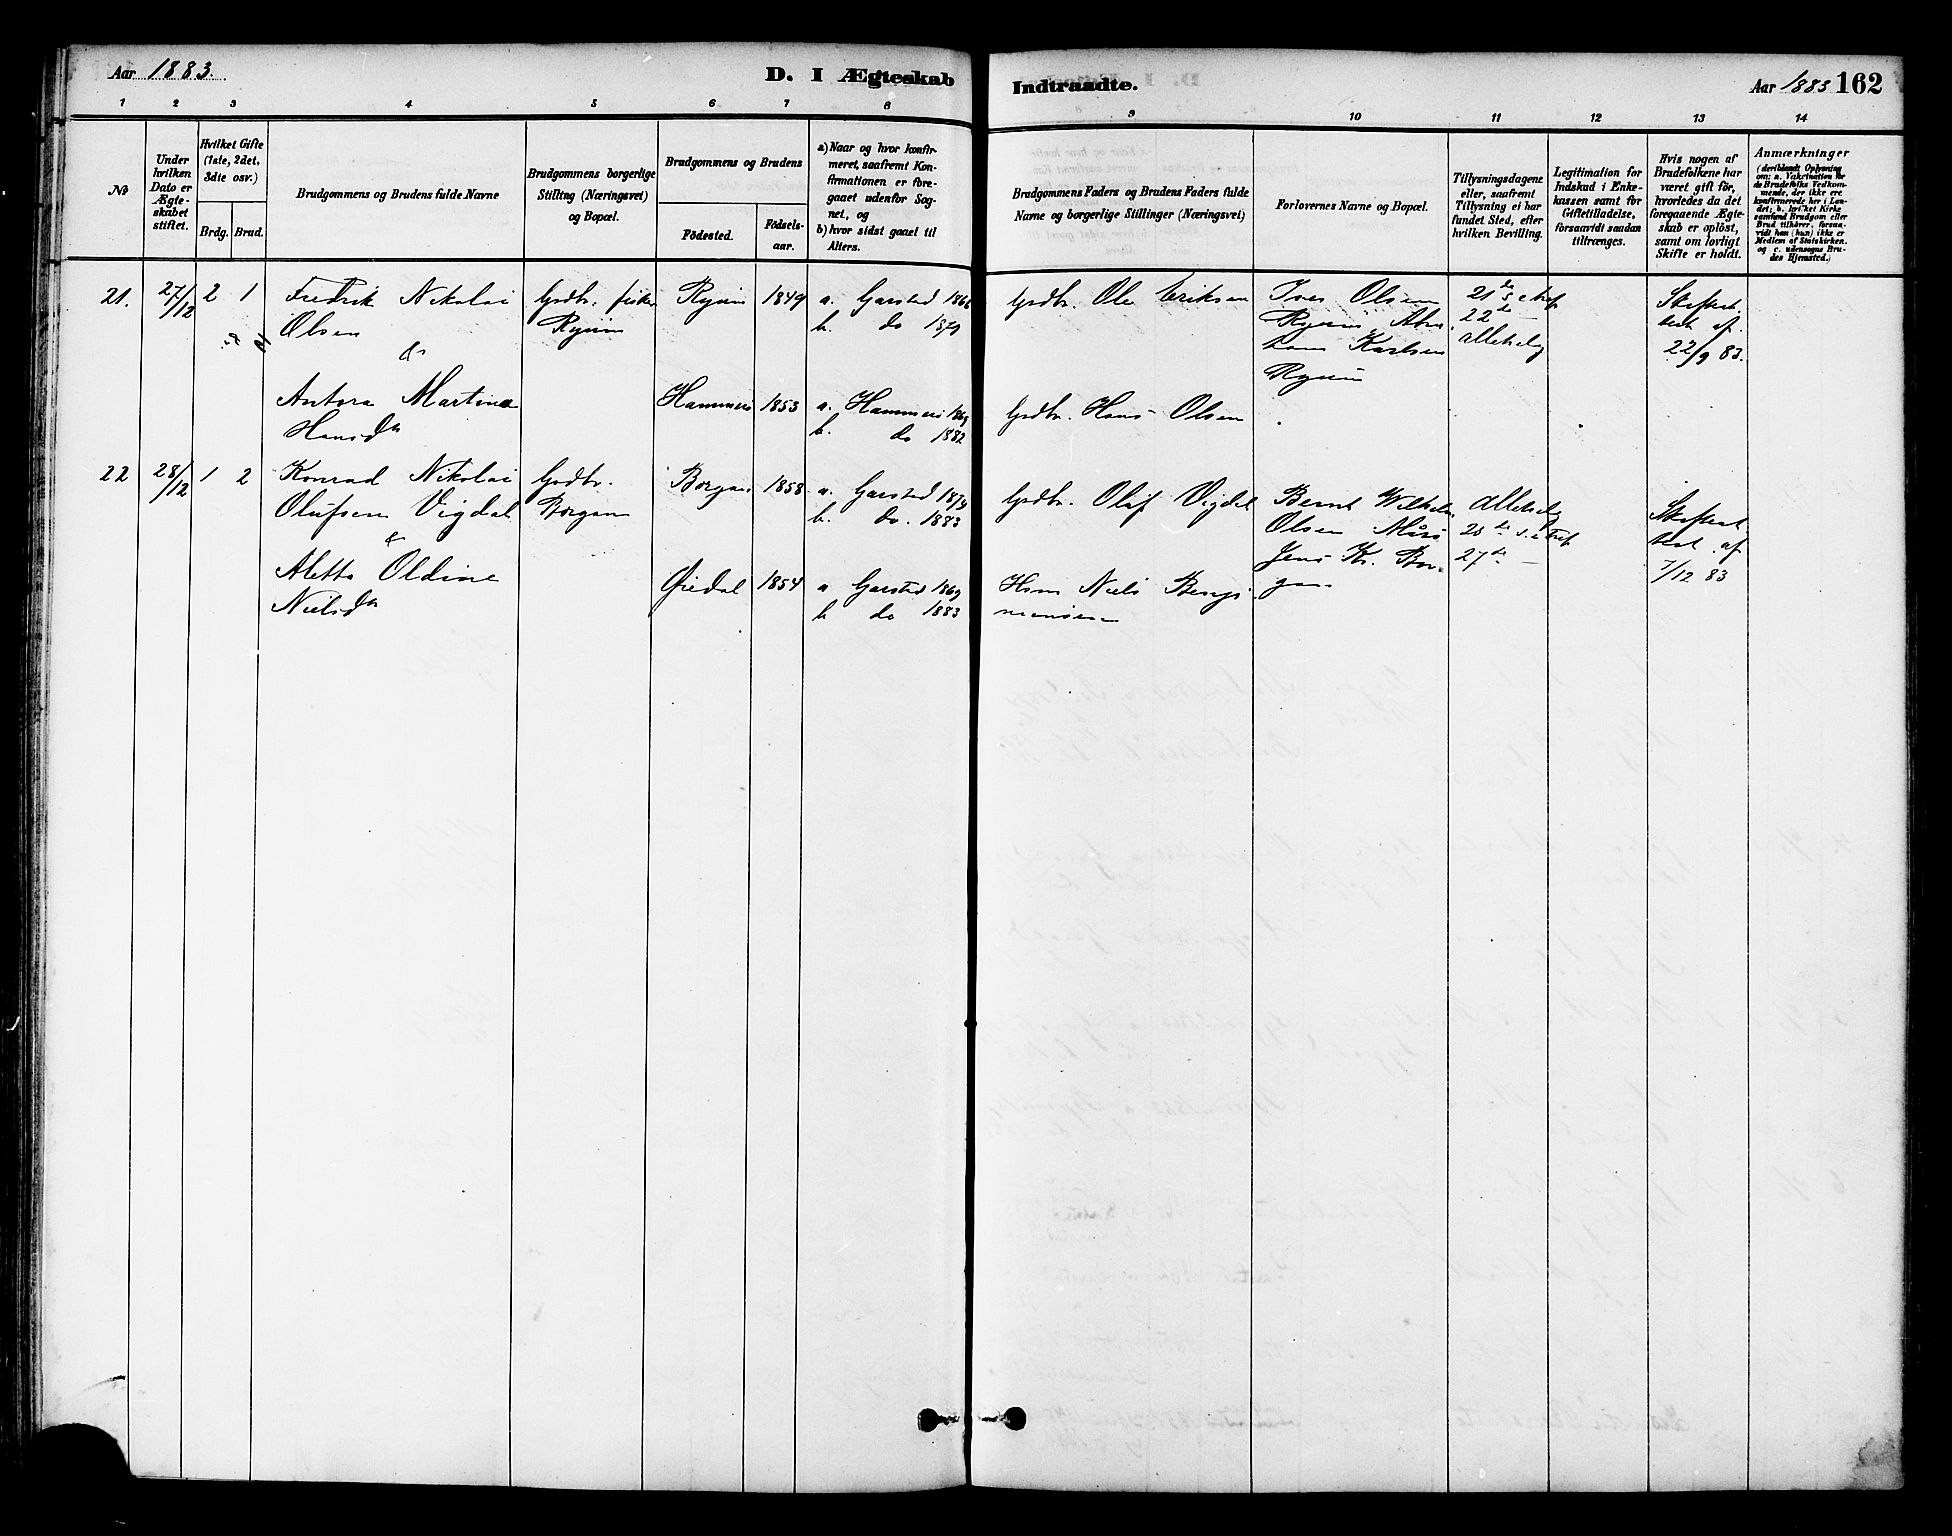 Aar 1883.
D. I Ægteskab
Indtraadte.
Aar 1883 162
1 2 3 4 5 6 7 8 9 10 11 12 13 14
No
Under hvilken Dato er Ægteskabet stiftet.
Hvilket Gifte (1ste, 2det, 3die osv.)
Brdg. Brud.
Brudgommens og Brudens fulde Navne
Brudgommens borgerlige Stilling (Næringsvei) og Bopæl.
Brudgommens og Brudens
Födested.
Födselsaar.
a) Naar og hvor konfirmeret, saafremt Konfirmationen er foregaaet udenfor Sognet, og
b) hvor sidst gaaet til Alters.
Brudgommens Faders og Brudens Faders fulde Navne og borgerlige Stillinger (Næringsvei)
Forlovernes Navne og Bopæl.
Tillysningsdagene eller, saafremt Tillysning ei har fundet Sted, efter hvilken Bevilling.
Legitimation for Indskud i Enkekassen samt for Giftetilladelse, forsaavidt saadan tiltrænges.
Hvis nogen af Brudefolkene har været gift för, hvorledes da det foregaaende Ægteskab er oplöst, samt om lovligt Skifte er holdt.
Anmærkninger
(deriblandt Oplysning om: a. Vakcination for de Brudefolks Vedkommende, der ikke ere konfirmerede her i Landet; b. hvilket Kirkesamfund Brudgom eller Brud tilhörer, forsaavidt han (hun) ikke er Medlem af Statskirken. og c. udensogns Brudes Hjemsted.)
21. 27/12 2 1
Fredrik Nikolai
Olsen
&
Antora Martinea
Hansdtr
Grdbr. fisker
1849
a. Garstad
b. do
Grdbr. Ole Eriksen
Iver Olsen
Karlsen
21de
22de —
22/9 83.
Hammeri 1853
a. Hammeri
b. do 1882
Grdbr. Hans Olsen
22 28/12 1 2
Konrad Nikolai
Olufsen Vigdal
&
Aletta Oldine
Nielsdtr
Grdbr.
Borgan
Borgan 1858
a. Garstad
b. do. 1883
Grdbr. Oluf Vigdal
Bernt Wilhelm
Olsen
Jens Kr. Bor-
gan
27de —
af
7/12 83
1854
a Garstad 1869
b do 1883
Niels